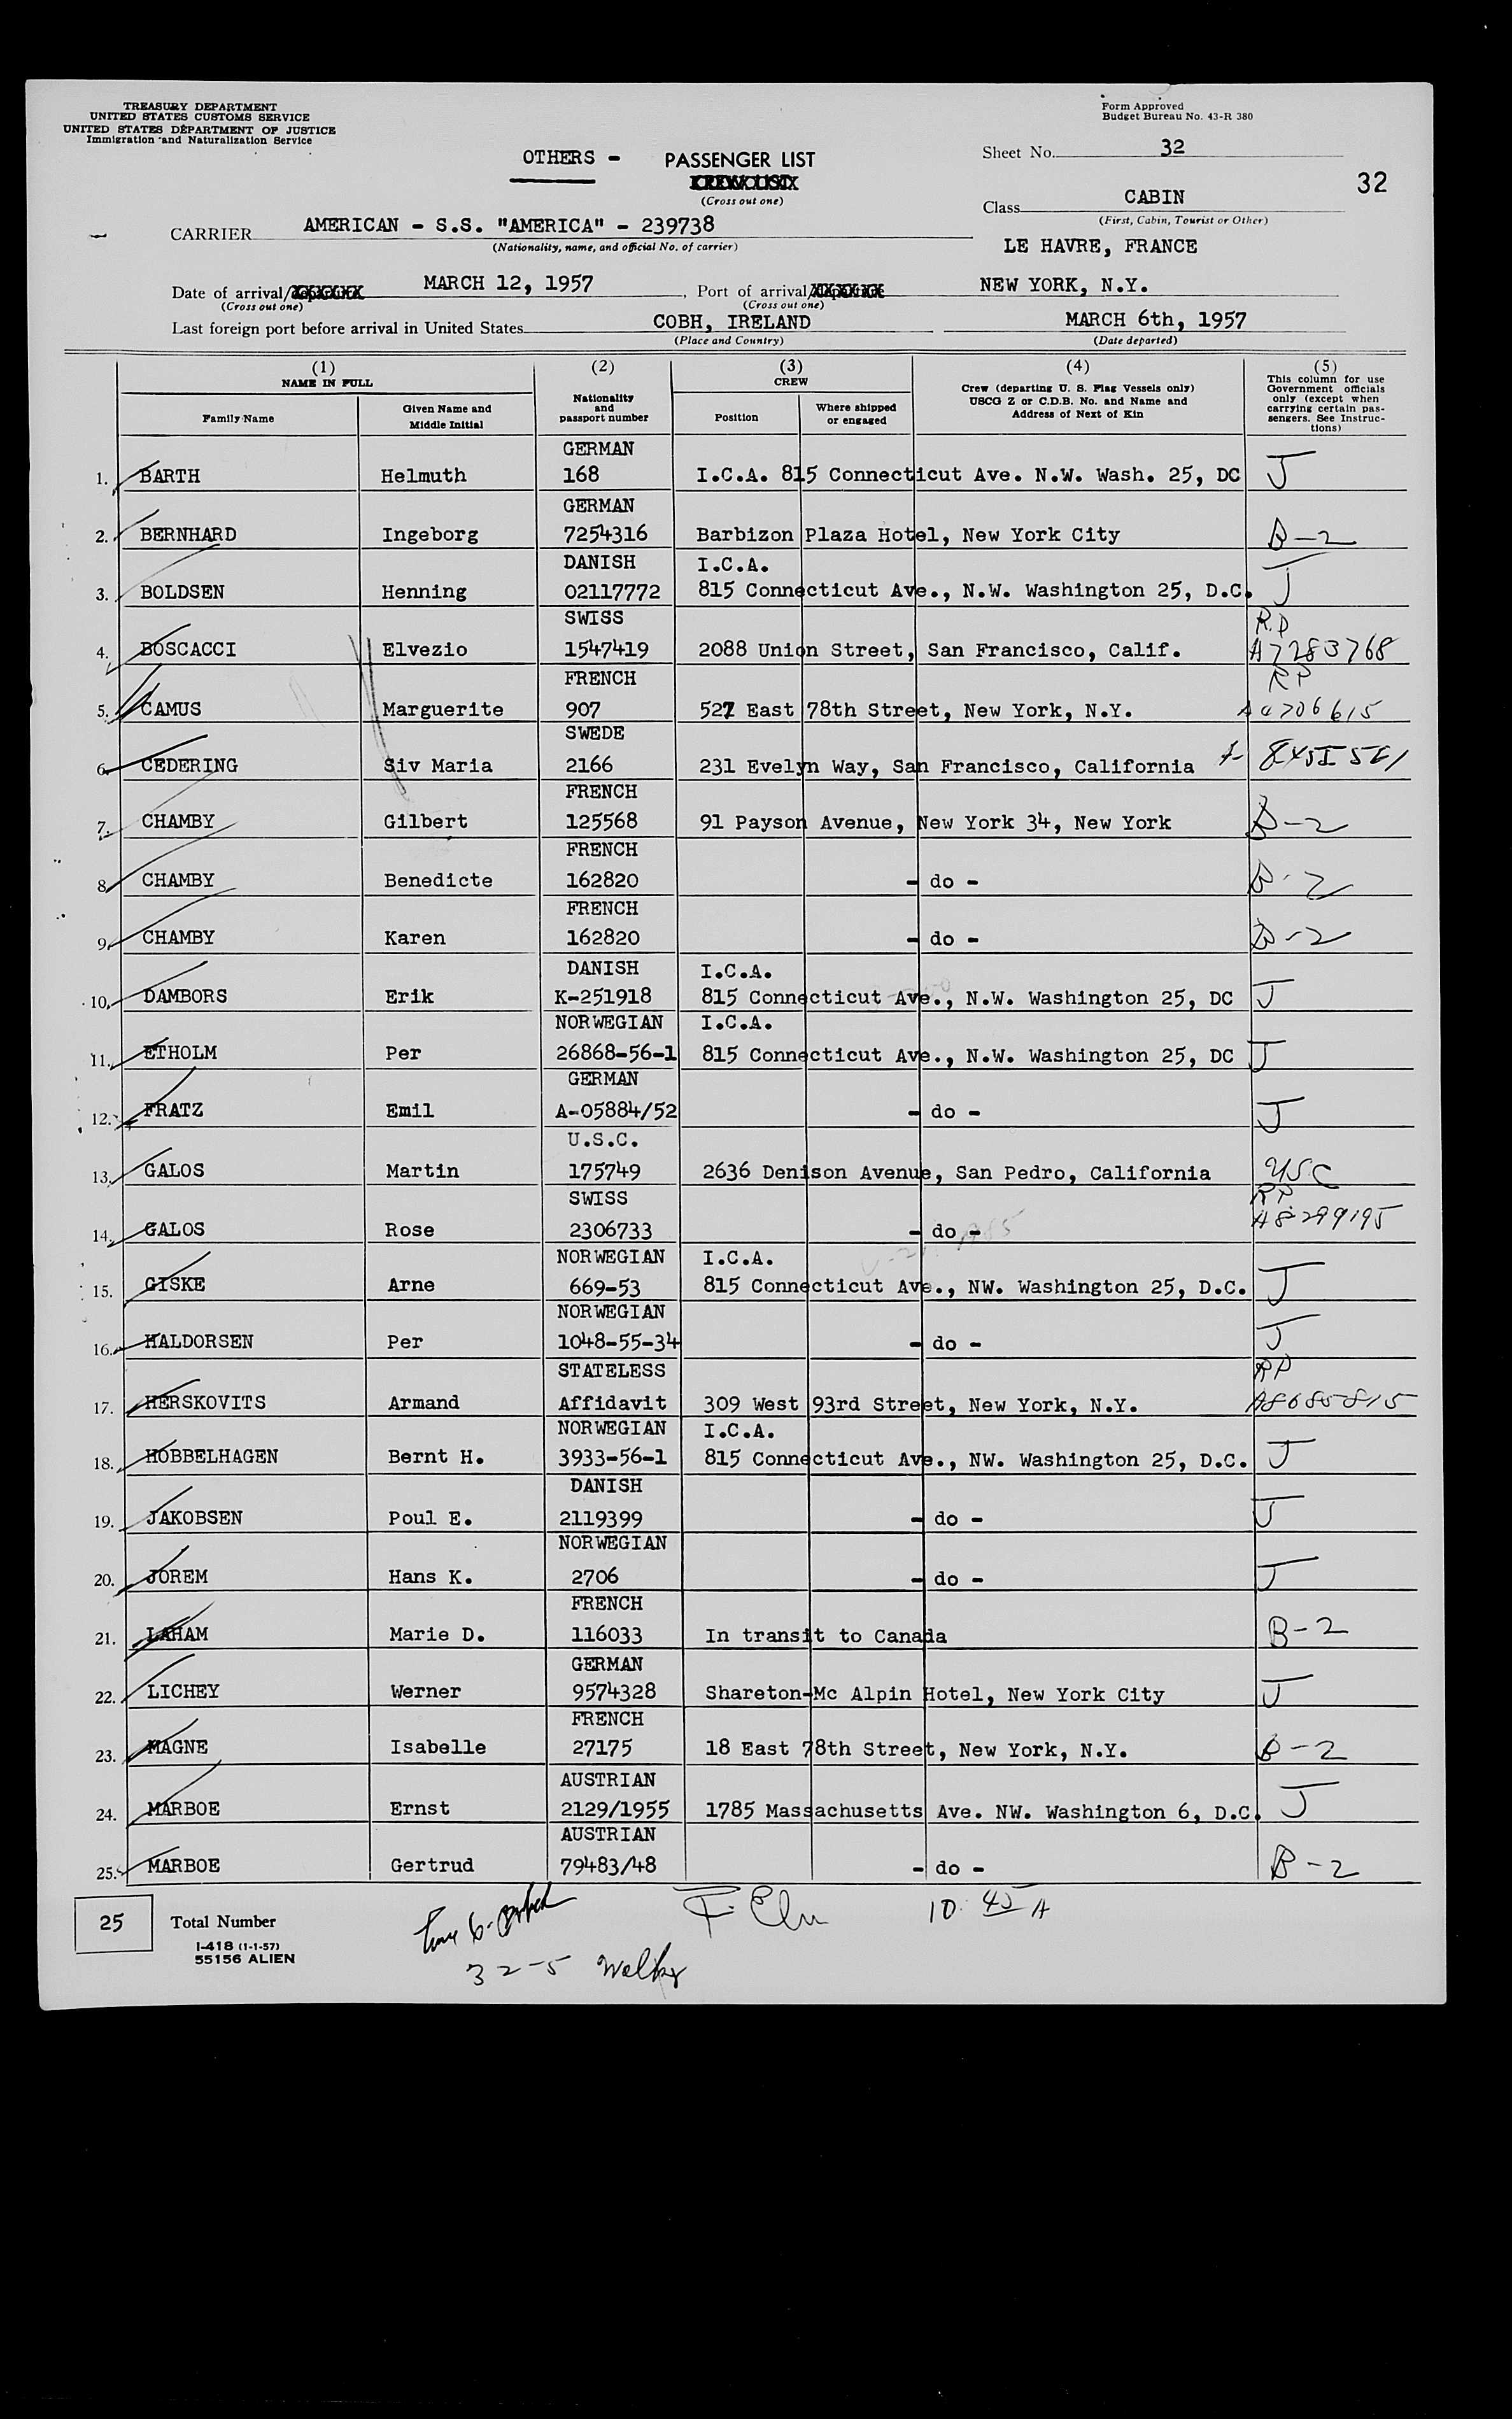 TREASURY DEPARTMENT
UNITED STATES CUSTOMS SERVICE
UNITED STATES DEPARTMENT OF JUSTICE
Immigration and Naturalization Service
Form Approved
Budget Bureau No. 43-R 380
OTHERS - PASSENGER LIST
(Cross out one)
Sheet No. 32
32
Class CABIN
(First, Cabin, Tourist or Other)
CARRIER AMERICAN - S.S. "AMERICA" - 239738
(Nationality, name, and official No. of carrier)
LE HAVRE, FRANCE
Date of arrival/ MARCH 12, 1957, Port of arrival/ NEW YORK, N.Y.
(Cross out one) (Cross out one)
Last foreign port before arrival in United States COBH, IRELAND MARCH 6th, 1957
(Place and Country) (Date departed)
(1) (2) (3) (4) (5)
NAME IN FULL
Family Name
Given Name and Middle Initial
Nationality and passport number
CREW
Position
Where shipped or engaged
Crew (departing U. S. Flag Vessels only) USCG Z or C.D.B. No. and Name and Address of Next of Kin
This column for use Government officials only (except when carrying certain passengers. See Instructions)
GERMAN
1. BARTH Helmuth 168 I.C.A. 815 Connecticut Ave. N.W. Wash. 25, DC J
GERMAN
2. BERNHARD Ingeborg 7254316 Barbizon Plaza Hotel, New York City B-2
DANISH I.C.A.
3. BOLDSEN Henning 02117772 815 Connecticut Ave., N.W. Washington 25, D.C. J
SWISS RP
4. BOSCACCI Elvezio 1547419 2088 Union Street, San Francisco, Calif. A7283768
FRENCH RP
5. CAMUS Marguerite 907 527 East 78th Street, New York, N.Y.
SWEDE
6. CEDERING Siv Maria 2166 231 Evelyn Way, San Francisco, California
FRENCH
7. CHAMBY Gilbert 125568 91 Payson Avenue, New York 34, New York B-2
FRENCH
8. CHAMBY Benedicte 162820 - do - B-2
FRENCH
9. CHAMBY Karen 162820 - do - B-2
DANISH I.C.A.
10. DAMBORS Erik K-251918 815 Connecticut Ave., N.W. Washington 25, DC J
NORWEGIAN I.C.A.
11. ETHOLM Per 26868-56-1 815 Connecticut Ave., N.W. Washington 25, DC J
GERMAN
12. FRATZ Emil A-05884/52 - do - J
U.S.C.
13. GALOS Martin 175749 2636 Denison Avenue, San Pedro, California USC
SWISS RP
14. GALOS Rose 2306733 - do - A8299195
NORWEGIAN I.C.A.
15. GISKE Arne 669-53 815 Connecticut Ave., NW. Washington 25, D.C. J
NORWEGIAN
16. HALDORSEN Per 1048-55-34 - do - J
STATELESS RP
17. HERSKOVITS Armand Affidavit 309 West 93rd Street, New York, N.Y. A8685815
NORWEGIAN I.C.A.
18. HOBBELHAGEN Bernt H. 3933-56-1 815 Connecticut Ave., NW. Washington 25, D.C. J
DANISH
19. JAKOBSEN Poul E. 2119399 - do - J
NORWEGIAN
20. JOREM Hans K. 2706 - do - J
FRENCH
21. LAHAM Marie D. 116033 In transit to Canada B-2
GERMAN
22. LICHEY Werner 9574328 Shareton-Mc Alpin Hotel, New York City J
FRENCH
23. MAGNE Isabelle 27175 18 East 78th Street, New York, N.Y. B-2
AUSTRIAN
24. MARBOE Ernst 2129/1955 1785 Massachusetts Ave. NW. Washington 6, D.C. J
AUSTRIAN
25. MARBOE Gertrud 79483/48 - do - B-2
25 Total Number
10 45 A
I-418 (1-1-57)
55156 ALIEN
32-5